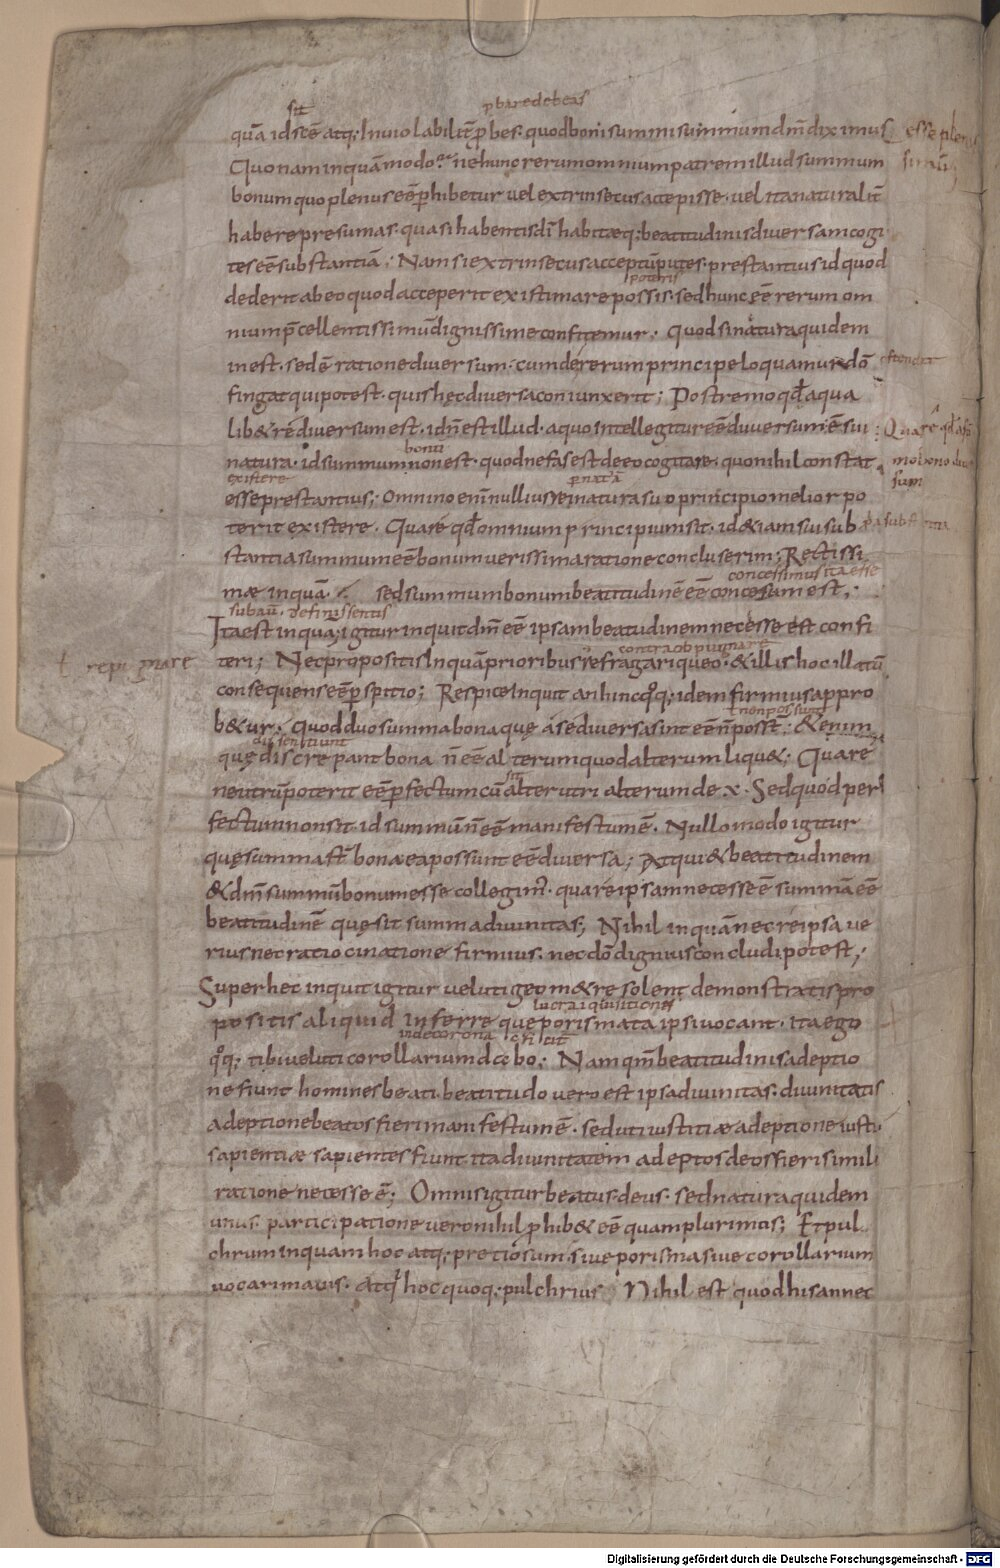 sit ꝓbare debeas
quā id scē atq; Inuiolabilit̄ ꝓbes. quod boni summi summum dm̄ diximus esse plenus
Quonam inquā modo. ne hunc rerum omnium patrem illud summum
bonum quo plenus eē ꝓhibetur uel extrinsecus accepisse. uel ita naturalit̄
habere presumas. quasi habentis dī habitæq; beatitudinis diuersam cogi
tes eē substantiā; Nam si extrinsecus acceptū putes. prestantius id quod
dederit ab eo quod acceperit existimare possis. sed hunc eē rerum om
nium p̄cellentissimū dignissime confitemur. Quod si natura quidem
inest. sed ē ratione diuersum. cum de rerum principe loquamur dō
fingat qui potest. quis hec diuersa coniunxerit; Postremo qd̄ a qua
lib& re diuersum est. id n̄ est illud. a quo intellegitur eē diuersum. ē sui
bonū
natura. id summum non est. quod nefas est de eo cogitare. quo nihil constat
existere
esse prestantius; Omnino enī nullius rei natura suo principio melior po
terit existere. Quare qd̄ omnium principium sit. id &iam sui sub
stantia summum eē bonum uerissima ratione concluserim; Rectissi
concessimus ita esse
mæ inquā. sed summum bonum beatitudinē eē concessum est;
subaū. definissentis
Ita est inquā; igitur inquit dm̄ eē ipsam beatudinem necesse est confi
contra obpugnare
ł repugnare teri; Nec propositis Inquā prioribus refragari queo. & illis hoc illatū
consequens eē ꝑspitio; Respice Inquit an hinc qq; idem firmius appro
ł non possunt
b&ur. Quod duo summa bona quę a se diuersa sint eē n̄ posst̄; &enim
dissentiunt
quę discrepant bona n̄ eē alterum quod alterum liqu&. Quare
sit
neutrū poterit eē ꝑfectum cū alterutri alterum de x. Sed quod per
fectum non sit id summū n̄ eē manifestum ē. Nullo modo igitur
quę summa st̄ bona ea possunt eē diuersa; Atqui & beatitudinem
& dm̄ summū bonum esse collegim'. quare ipsam necesse ē summā eē
beatitudinē quę sit summa diuinitas; Nihil inquā nec re ipsa ue
rius nec ratiocinatione firmius. nec dō dignius concludi potest;
Super hec inquit igitur ueluti geom&re solent demonstratis pro
lucra inquisitiones
positis aliquid inferre que porismata ipsi uocant. ita ego
qq; tibi ueluti corollarium dabo; Nam qm̄ beatitudinis adeptio
ne fiunt homines beati. beatitudo uero est ipsa diuinitas. diuinitatis
adeptione beatos fieri manifestum ē. sed uti iustitiæ adeptione iusti
sapientiæ sapientes fiunt ita diuinitatem adeptos deos fieri simili
ratione necesse ē; Omnis igitur beatus deus. sed natura quidem
unus. participatione uero nihil ꝓhib& eē quam plurimos; Et pul
chrum inquam hoc atq; pretiosum. siue porisma siue corollarium
uocari mauis. Atq hoc quoq; pulchrius Nihil est quod his annec
Digitalisierung gefördert durch die Deutsche Forschungsgemeinschaft - DFG